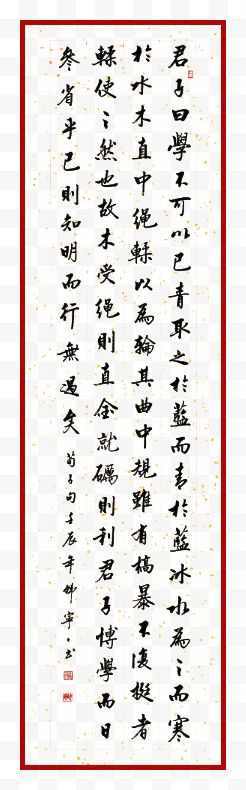 君子曰學不可以已青取之於藍而青於藍冰水為〻而寒
於水木直中繩輮以為輪其曲中規雖有槁暴不復挺者
輮使〻然也故木受繩則直金就礪則利君子博學而日
參省乎己則知明而行無過矣 荀子句 壬辰年